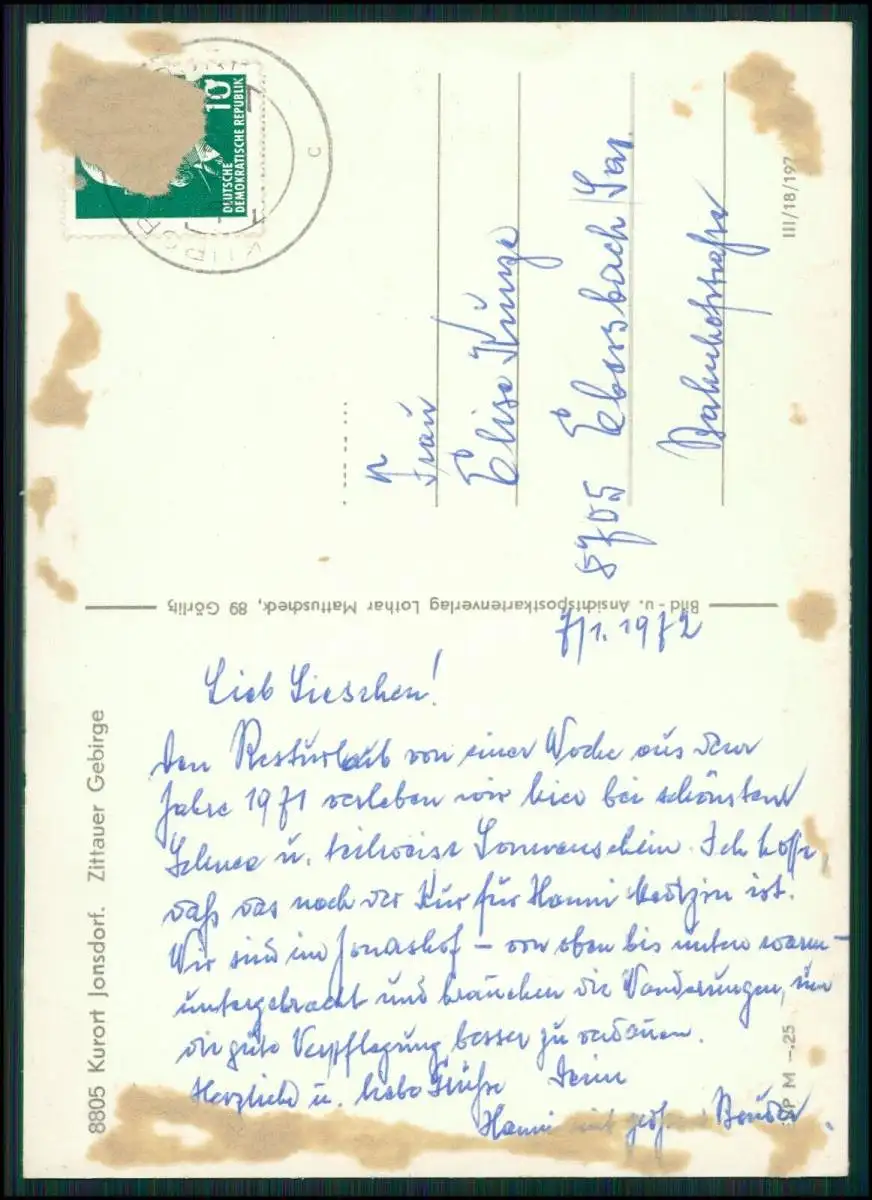 8805 Kurort Jonsdorf. Zittauer Gebirge
7/1. 1972
Lieb Lieschen!
Den Resturlaub von einer Woche aus dem
Jahre 1971 verleben wir hier bei schönstem
Schnee u. teilweise Sonnenschein. Ich hoffe,
daß das nach der Kur für Hanni Medizin ist.
Wir sind im Jonashof – von oben bis unten warm –
untergebracht und brauchen die Wanderungen, um
die gute Verpflegung besser zu verdauen.
Herzliche u. liebe Grüße Dein
Hanni mit Bruder
Bild- u. Ansichtspostkartenverlag Lothar Mattuscheck, 89 Görlitz
10
DEUTSCHE
DEMOKRATISCHE REPUBLIK
C
Frau
Elise Künze
8705 Ebersbach/Sa.
Bahnhofstraße
III/18/197
M -.25